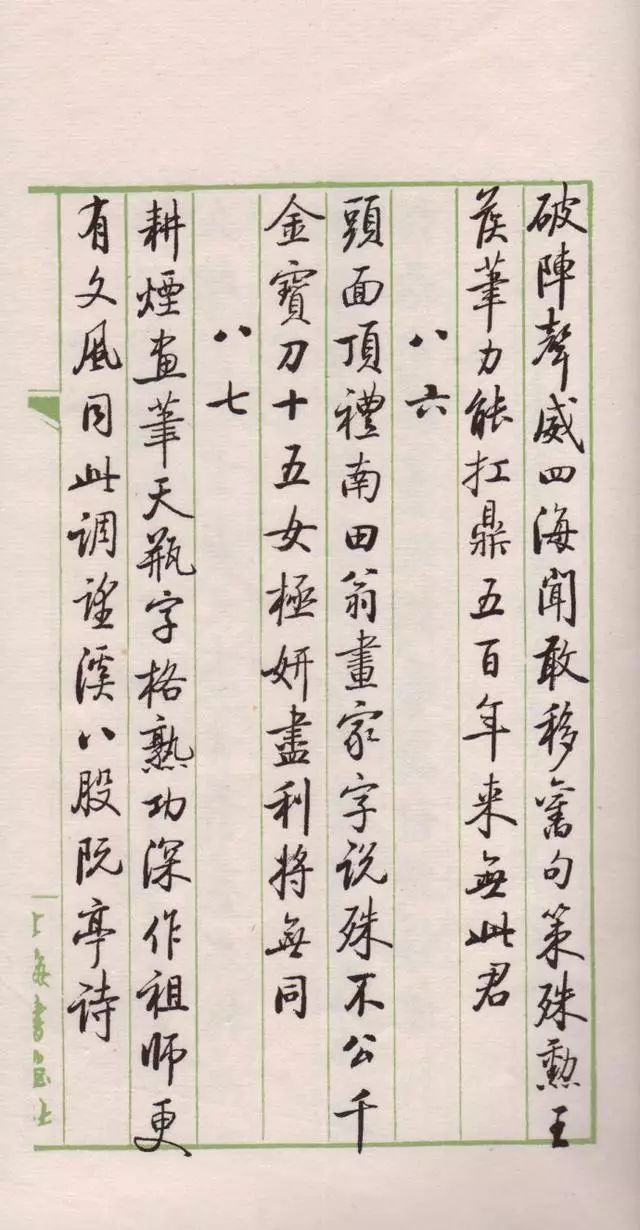 破陣聲威四海聞敢移舊句策殊勲王
侯筆力能扛鼎五百年来無此君
八六
頭面頂禮南田翁畫家字説殊不公千
金寶刀十五女極妍盡利將無同
八七
耕煙畫筆天瓶字格熟功深作祖師更
有文風同此調望溪八股阮亭詩
上海書畫社